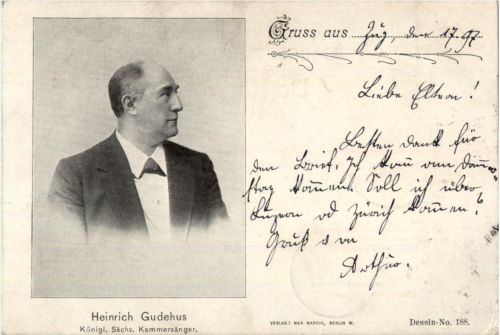 Gruss aus Zug, den 17. 97
Liebe Eltern!
Besten Dank für
den Brief. Ich kann am
stag kommen. Soll ich über
Luzern od Zürich kommen?
Gruß v on
Arthur.
Heinrich Gudehus
Königl. Sächs. Kammersänger.
VERLAG: MAX MARCUS, BERLIN W.
Dessin-No. 188.